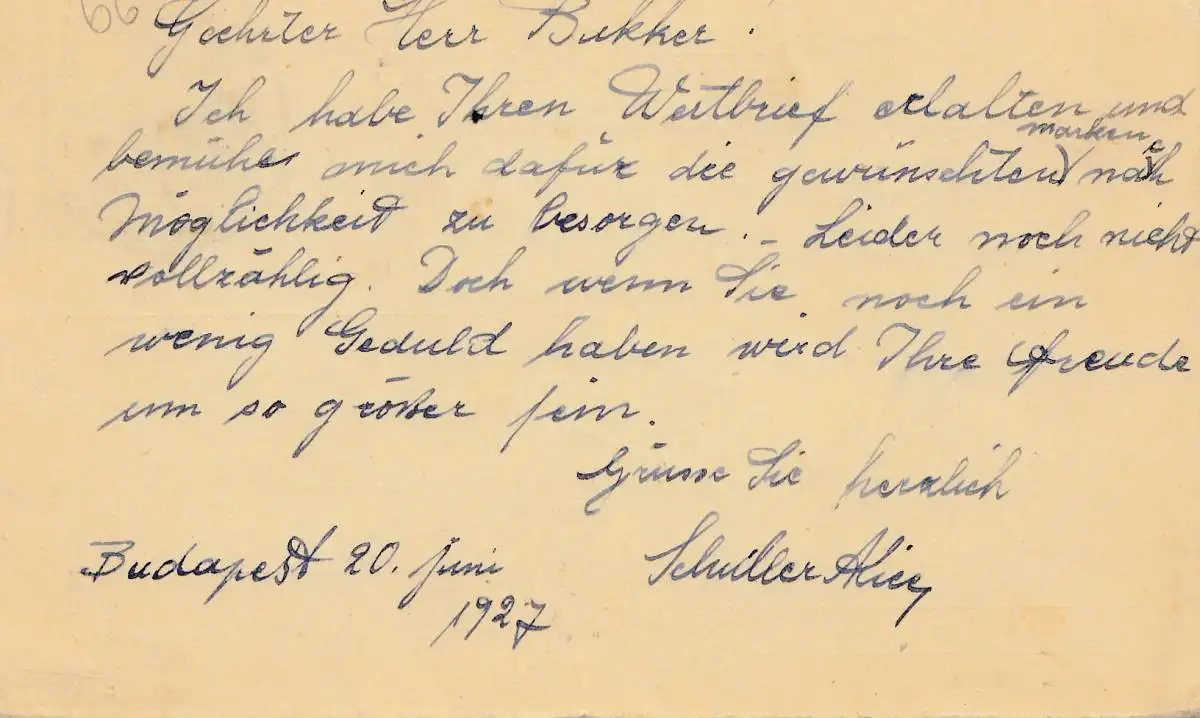 66
Geehrter Herr Bukker.
Ich habe Ihren Wertbrief erhalten und
marken
bemühe mich dafür die gewünschten nach
Möglichkeit zu besorgen. – Leider noch nicht
vollzählig. Doch wenn Sie noch ein
wenig Geduld haben wird Ihre Freude
um so größer sein.
Grüsse Sie herzlich
Budapest 20. juni Schuller Alice
1927